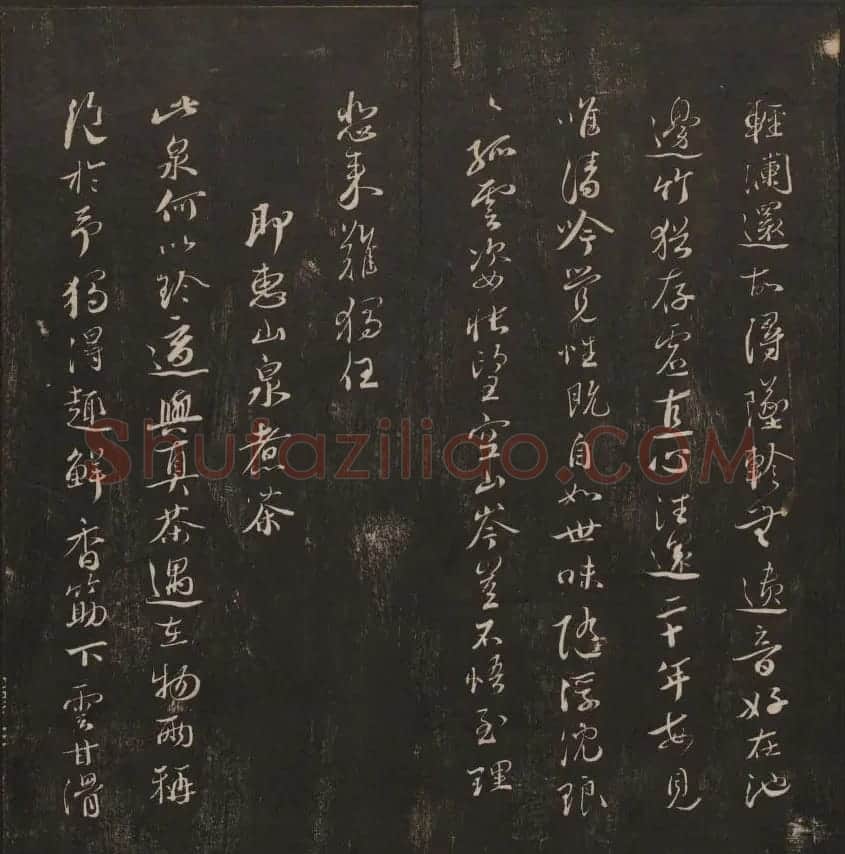 輕瀾還故潯墜軫無遺音好在池
邊竹猶存虛直心往還二十年每見
唯清吟覺性既自如世味隨浮沉琅
々孤雲姿悵望空山岑豈不悟至理
悲來難獨任
即惠山泉煮茶
此泉何以珍適與真茶遇在物兩稱
絕於予獨得趣鮮香筯下雲甘滑
Shufaziliao.COM